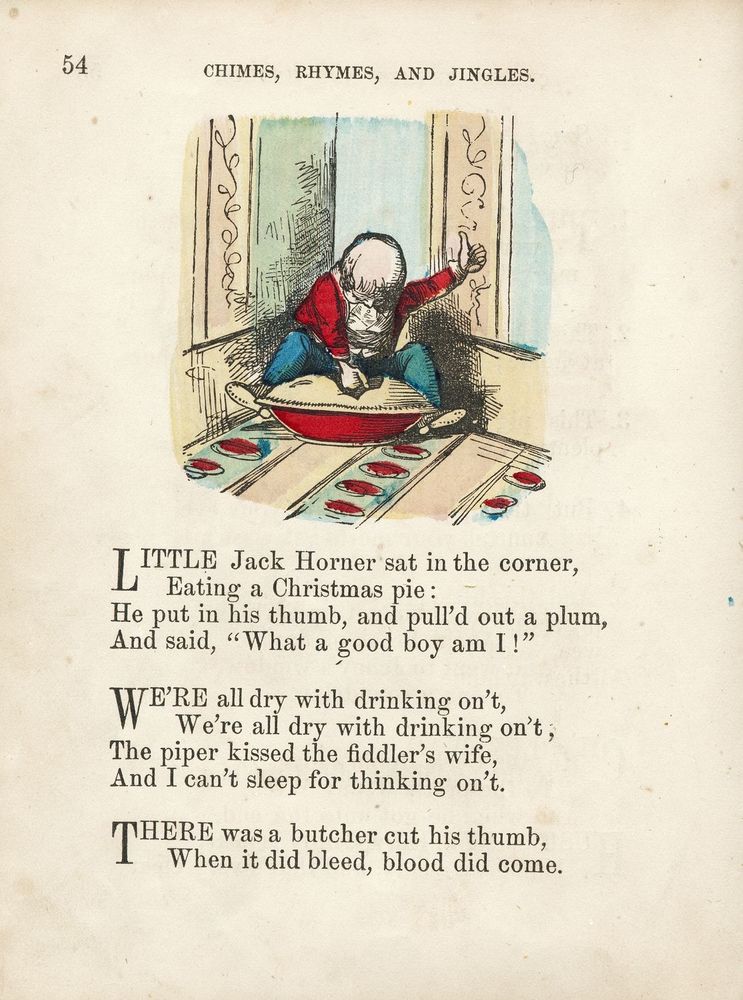 54
CHIMES, RHYMES, AND JINGLES.
LITTLE Jack Horner sat in the corner,
Eating a Christmas pie:
He put in his thumb, and pull'd out a plum,
And said, "What a good boy am I!"
WE'RE all dry with drinking on't,
We're all dry with drinking on't,
The piper kissed the fiddler's wife,
And I can't sleep for thinking on't.
THERE was a butcher cut his thumb,
When it did bleed, blood did come.